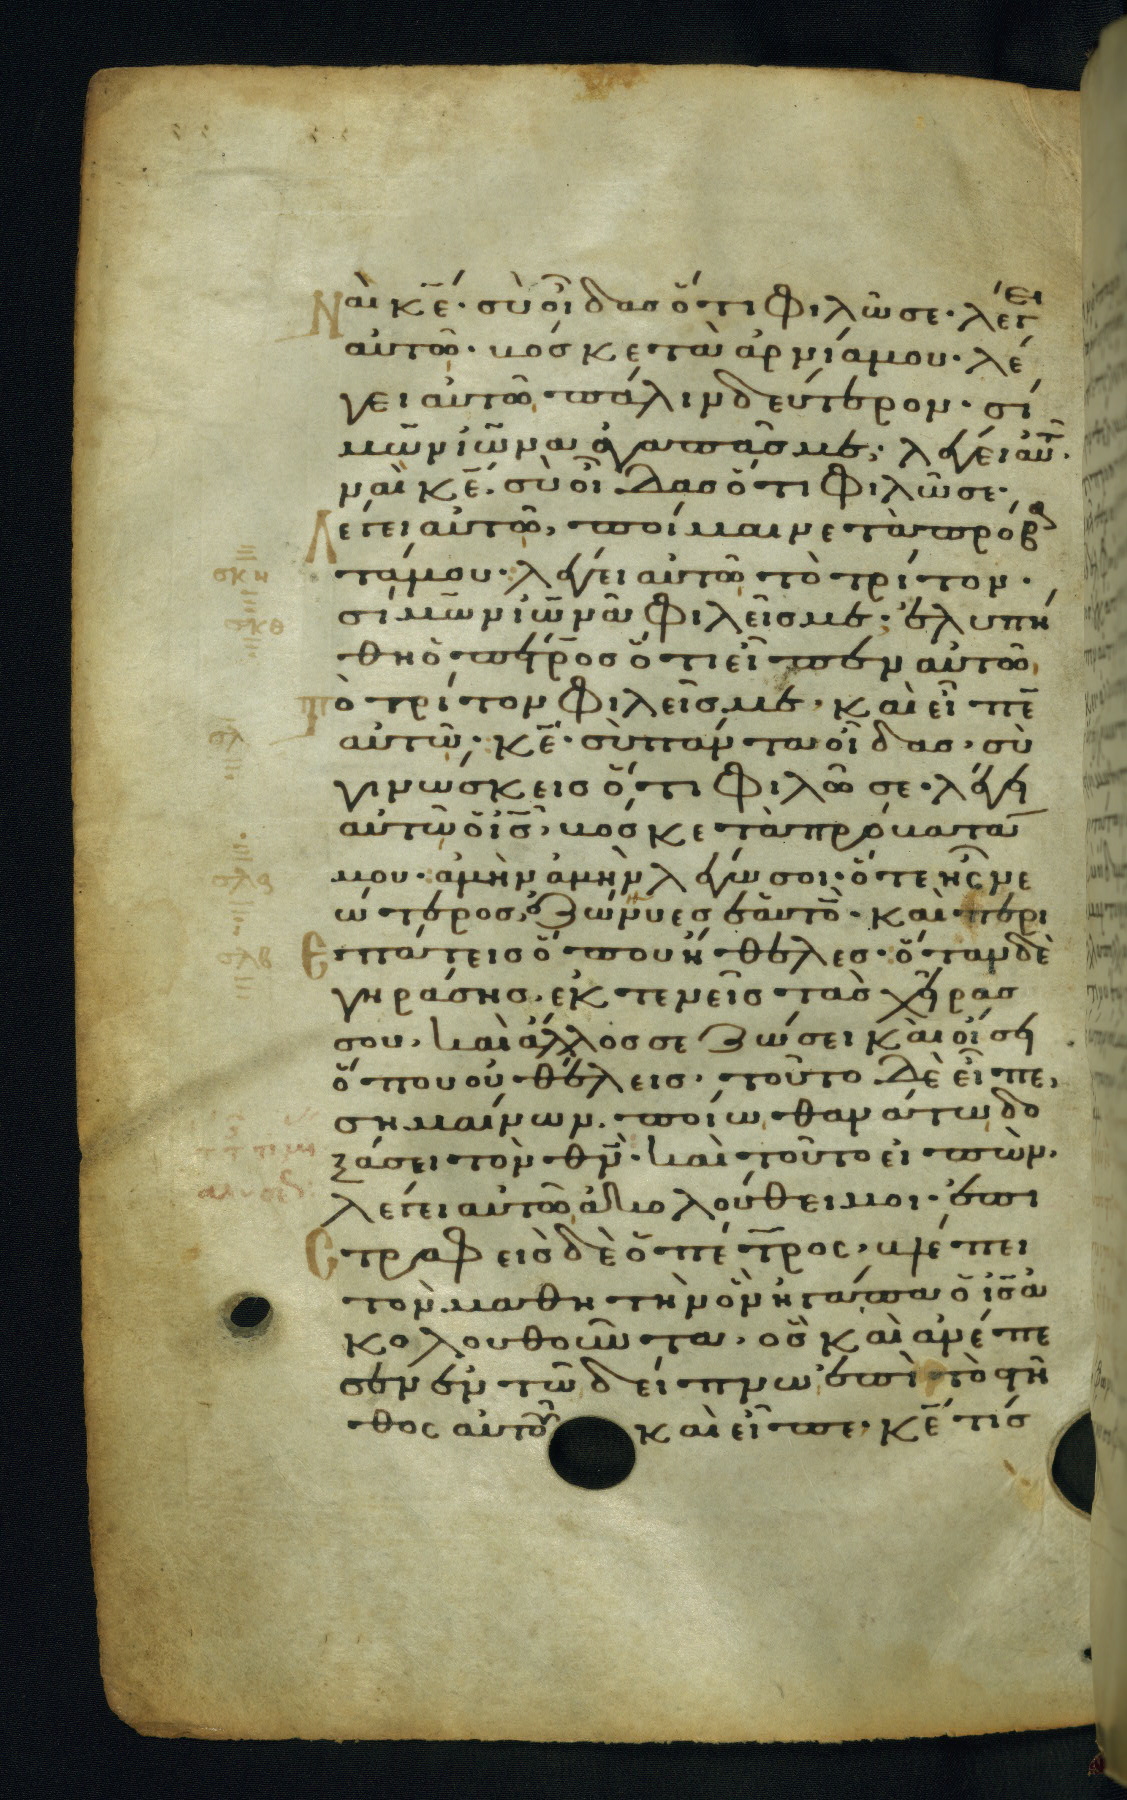 Ναὶ κ̅ε̅· σὺ οἶδας ὅτι φιλῶ σε· λέγει
αὐτῶ· βόσκε τὰ ἀρνία μου· λέ
γει αὐτῶ πάλιν δεύτερον· σί
μων ἰωνᾶ ἀγαπᾶς με; λέγει αὐτ·
ναὶ κ̅ε̅· σὺ οἶδας ὅτι φιλῶ σε·
Λέγει αὐτῶ, ποίμαινε τὰ πρόβα
τά μου· λέγει αὐτῶ τὸ τρίτον·
σκη
σίμων ἰωνᾶ φιλεῖς με; ἐλυπή
σκθ
θη ὁ πέτρος ὅτι εἶπεν αὐτῶ
Τὸ τρίτον φιλεῖς με· καὶ εἶπε
αὐτῶ· κ̅ε̅· σὺ πάντα οἶδας· σὺ
σλ
γινώσκεις ὅτι φιλῶ σε· λέγει
αὐτῶ ὁ ι̅ς̅, βόσκε τὰ πρόβατά
μου· ἀμὴν ἀμὴν λέγω σοι· ὅτε ἦς νε
σλα
ώτερος, ἐζώννυες ἑαυτὸ· καὶ περι
Επάτεις ὅπου ἤθελες· ὅταν δὲ
σλβ
γηράσης, ἐκτενεῖς τὰς χεῖρας
σου, καὶ ἄλλος σε ζώσει καὶ οἴσει
ὅπου οὐ θέλεις· τοῦτο δὲ εἶπε,
σημαίνων ποίω θανάτω δο
ξάσει τὸν θ̅ν̅· καὶ τοῦτο εἰπὼν,
λέγει αὐτῶ ἀκολούθει μοι· ἐπι
Στραφεὶς δὲ ὁ πέτρος, βλέπει
τὸν μαθητὴν ὃν ἠγάπα ὁ ι̅ς̅ ἀ
κολουθοῦντα, ὃς καὶ ἀνέπε
σεν ἐν τῶ δείπνω ἐπὶ τὸ στῆ
θος αὐτοῦ καὶ εἶπε· κ̅ε̅ τίς